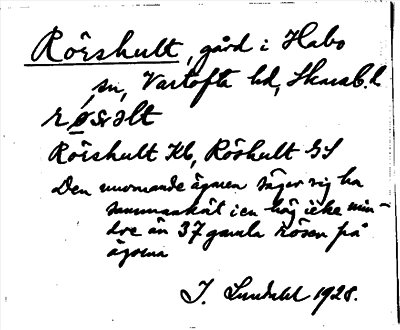 Rörshult, gård i Habo
sn, Vartofta hd, Skarab. l.
rø̄sǝlt
Rörshult Kb, Röshult GS
Den nuvarande ägaren säger sig ha
sammankört i en hög icke min-
dre än 37 gamla rösen på
ägorna
J. Lundahl 1928.